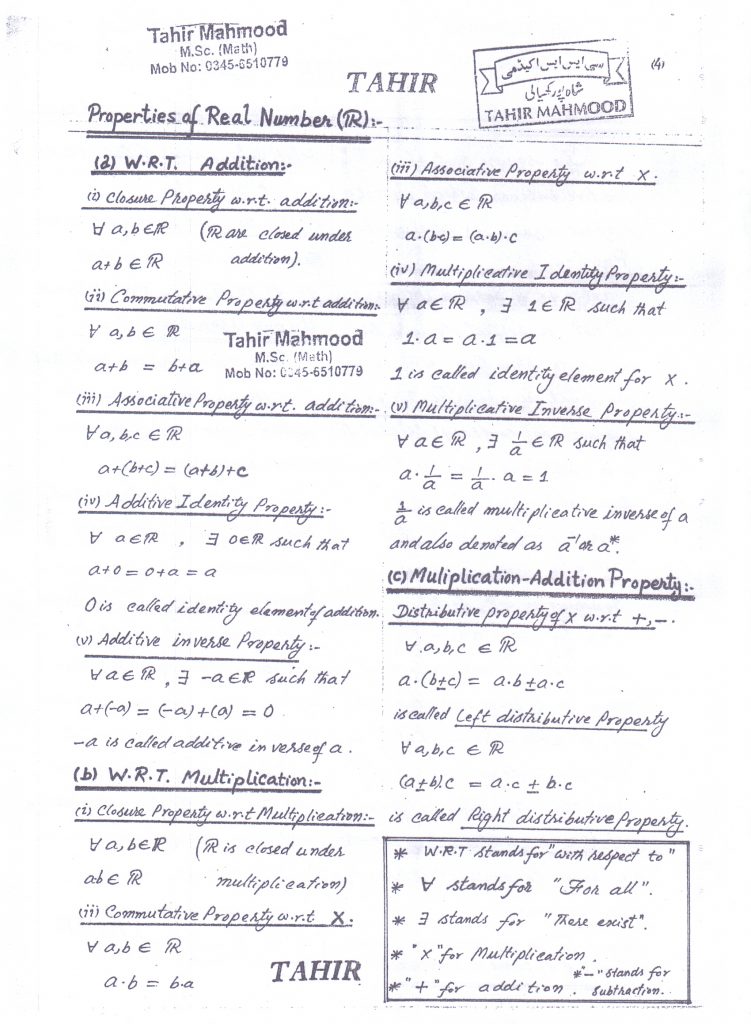 Tahir Mahmood
M.Sc. (Math)
Mob No: 0345-6510779
TAHIR
سی ایس ایس اکیڈمی
شاہ پور کھیالی
TAHIR MAHMOOD
(4)
Properties of Real Number (ℝ):-
(a) W.R.T. Addition:-
(i) Closure Property w.r.t. addition:-
∀ a,b∈ℝ (ℝ are closed under
a+b ∈ ℝ addition).
(ii) Commutative Property w.r.t addition:-
∀ a,b ∈ ℝ
a+b = b+a
Tahir Mahmood
M.Sc. (Math)
Mob No: 0345-6510779
(iii) Associative Property w.r.t. addition:-
∀ a,b,c ∈ ℝ
a+(b+c) = (a+b)+c
(iv) Additive Identity Property:-
∀ a∈ℝ , ∃ 0∈ℝ such that
a+0 = 0+a = a
0 is called identity element of addition.
(v) Additive inverse Property:-
∀ a ∈ ℝ , ∃ -a∈ℝ such that
a+(-a) = (-a)+(a) = 0
-a is called additive inverse of a.
(b) W.R.T. Multiplication:-
(i) Closure Property w.r.t Multiplication:-
∀ a,b∈ℝ (ℝ is closed under
ab ∈ ℝ multiplication)
(ii) Commutative Property w.r.t. X.
∀ a,b ∈ ℝ
a.b = b.a
TAHIR
(iii) Associative Property w.r.t X.
∀ a,b,c ∈ ℝ
a.(b.c) = (a.b).c
(iv) Multiplicative Identity Property:-
∀ a∈ℝ , ∃ 1∈ℝ such that
1.a = a.1 = a
1 is called identity element for X.
(v) Multiplicative Inverse Property:-
∀ a∈ℝ , ∃ 1/a ∈ ℝ such that
a. 1/a = 1/a . a = 1
1/a is called multiplicative inverse of a
and also denoted as a⁻¹ or a*.
(c) Muliplication-Addition Property:-
Distributive property of X w.r.t +,-.
∀ a,b,c ∈ ℝ
a.(b±c) = a.b ± a.c
is called Left distributive Property
∀ a,b,c ∈ ℝ
(a±b).c = a.c ± b.c
is called Right distributive Property.
* W.R.T stands for "with respect to"
* ∀ stands for "For all".
* ∃ stands for "There exist".
* "X" for Multiplication.
* "+" for addition. * "-" stands for
subtraction.